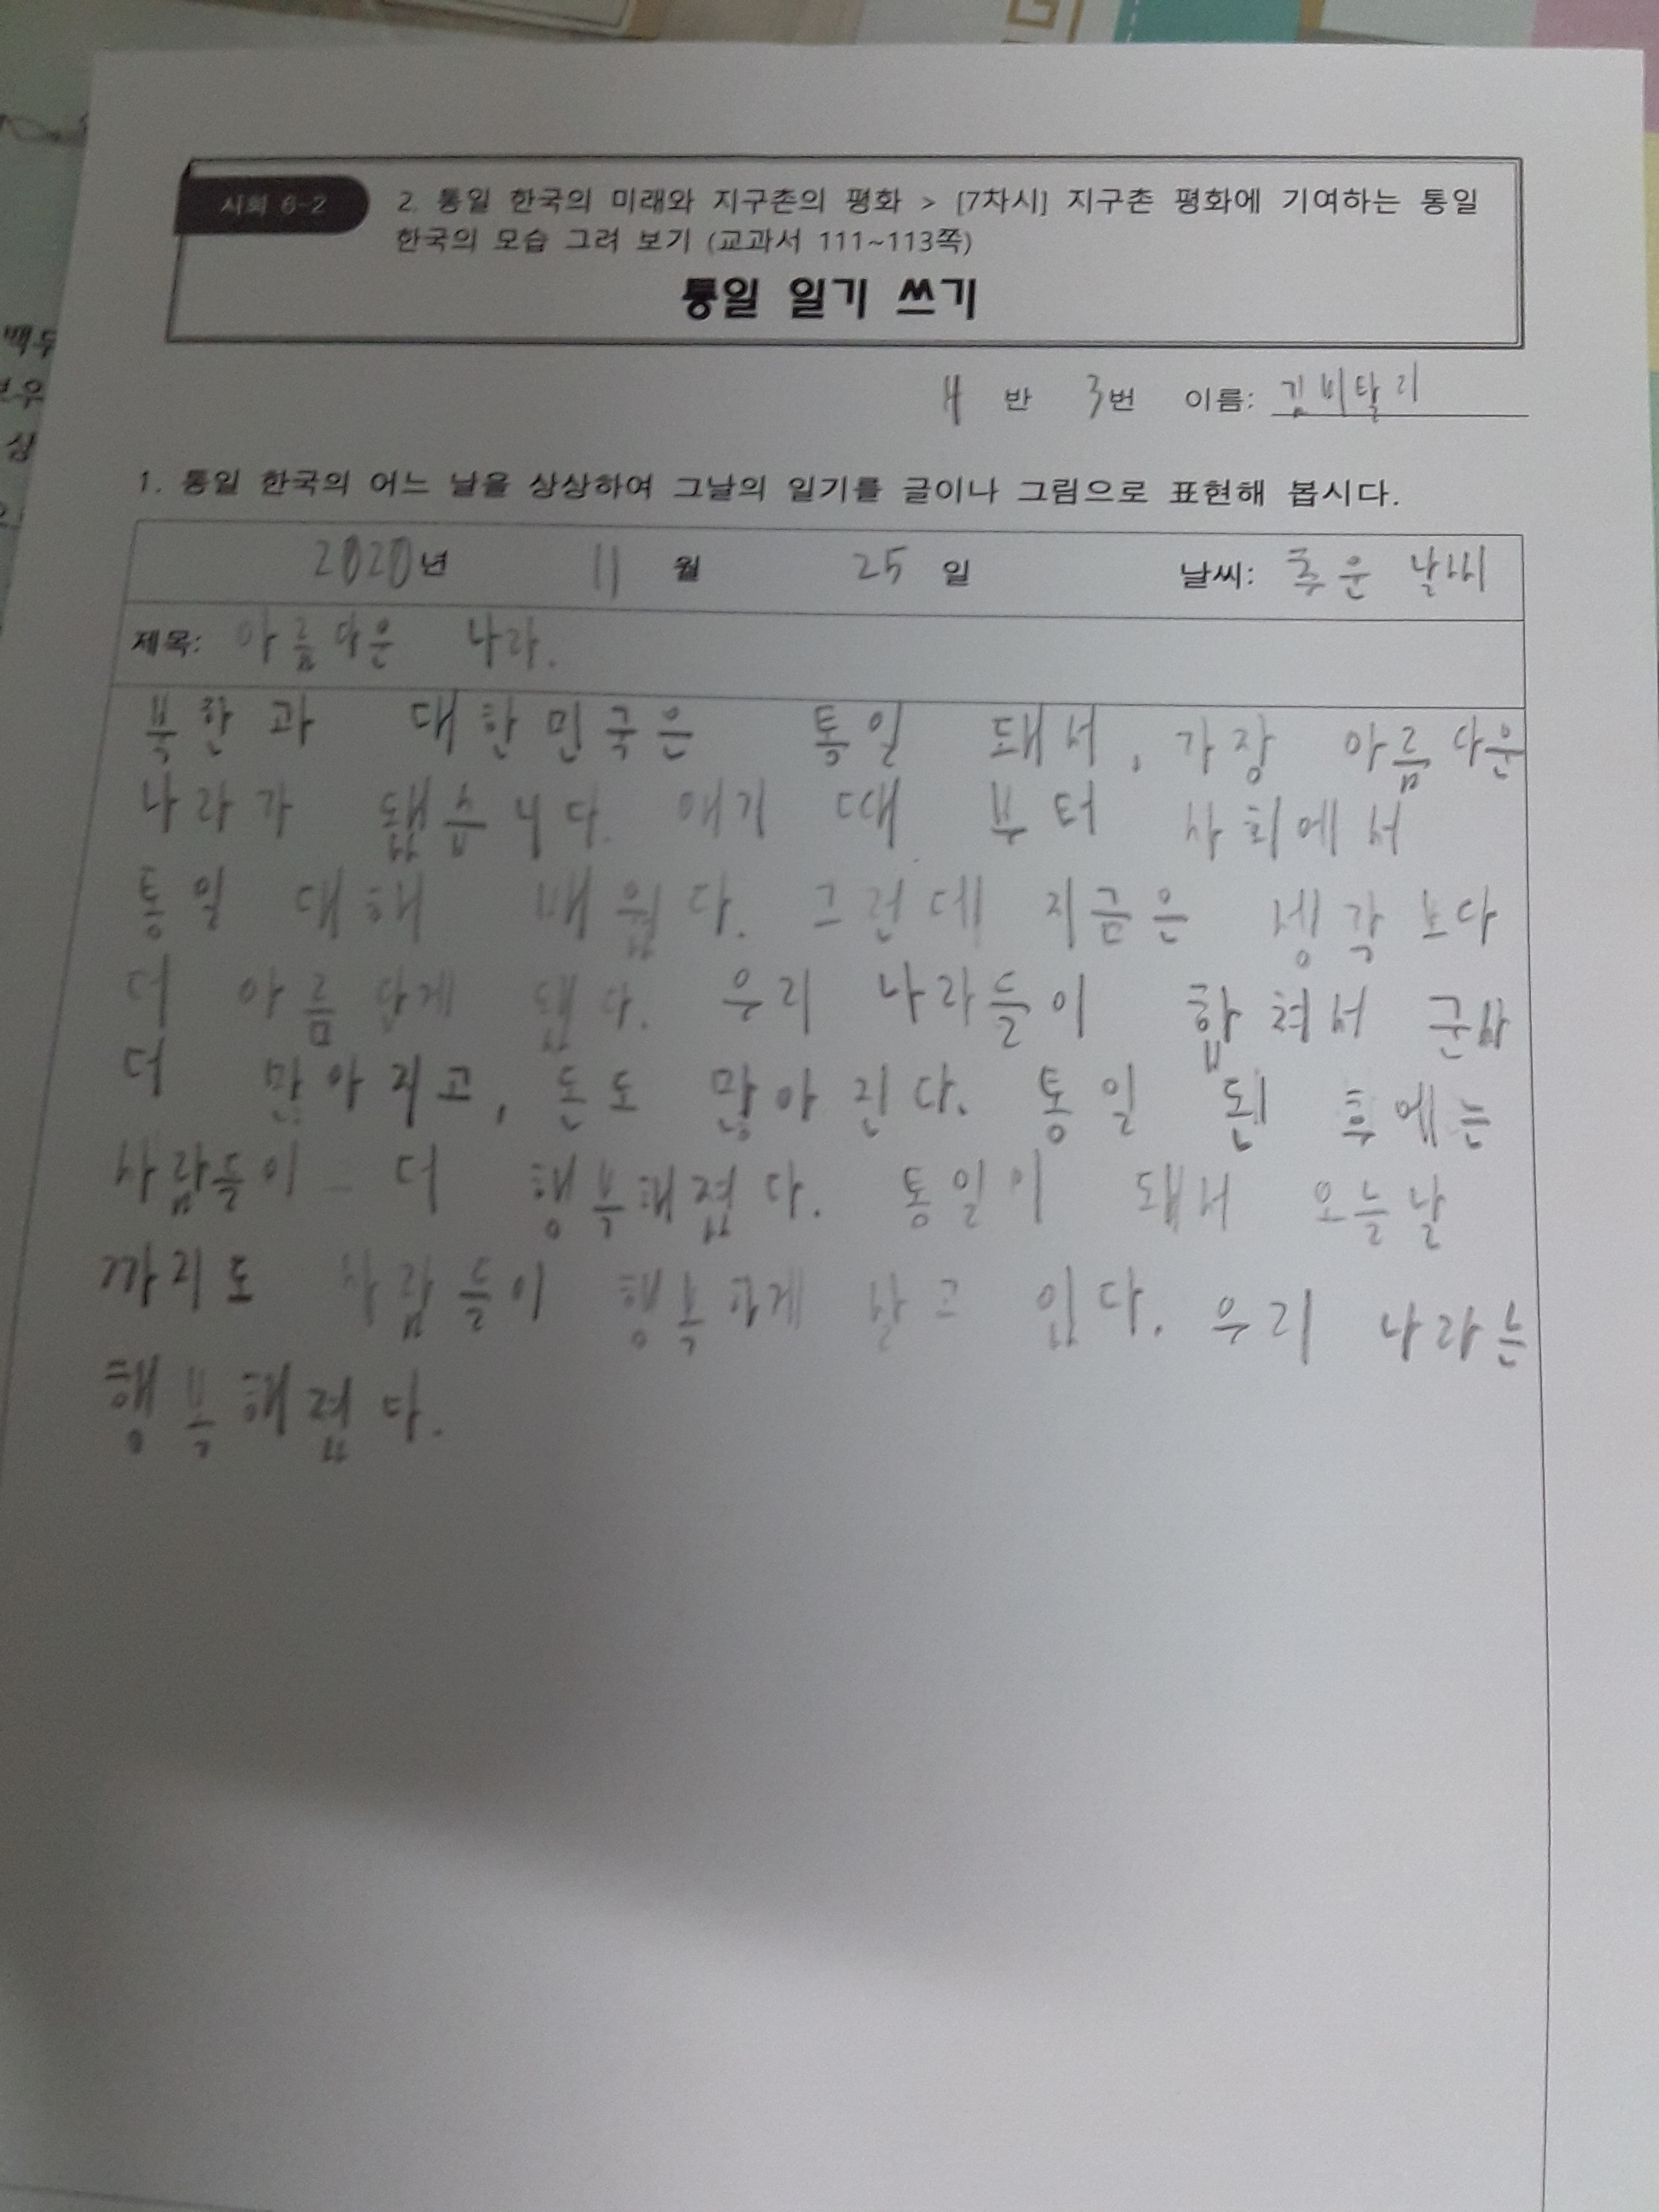 사회 6-2
2. 통일 한국의 미래와 지구촌의 평화 > [7차시] 지구촌 평화에 기여하는 통일
한국의 모습 그려 보기 (교과서 111~113쪽)
통일 일기 쓰기
4 반 3번 이름: 김비탈리
1. 통일 한국의 어느 날을 상상하여 그날의 일기를 글이나 그림으로 표현해 봅시다.
2020년 11 월 25 일 날씨: 추운 날씨
제목: 아름다운 나라.
북한과 대한민국은 통일 돼서, 가장 아름다운
나라가 됐습니다. 애기 때 부터 사회에서
통일 대해 배웠다. 그런데 지금은 셍각 보다
더 아름답게 됐다. 우리 나라들이 합쳐서 군사
더 많아지고, 돈도 많아진다. 통일 된 후에는
사람들이 더 행복해졌다. 통일이 돼서 오늘날
까지도 사람들이 행복하게 살고 있다. 우리 나라는
행복해졌다.
백두
상